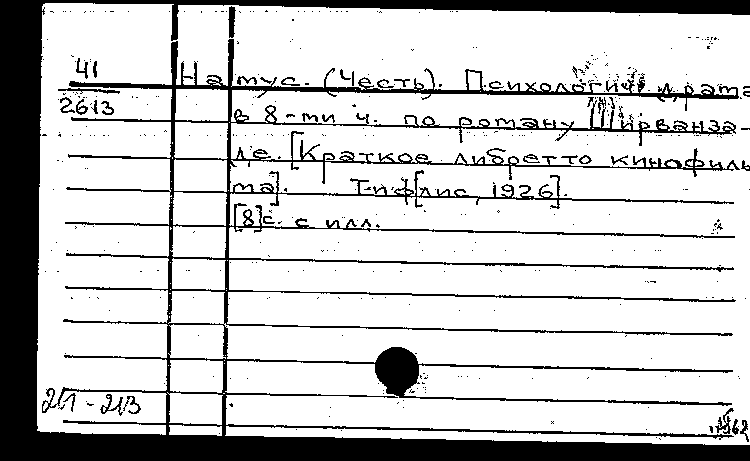 41
2613
Намус. (Честь). Психологич. драма
в 8-ми ч. по роману Ширванза-
де. [Краткое либретто кинофиль
ма]. Тифлис, 1926].
[8]с. с илл.